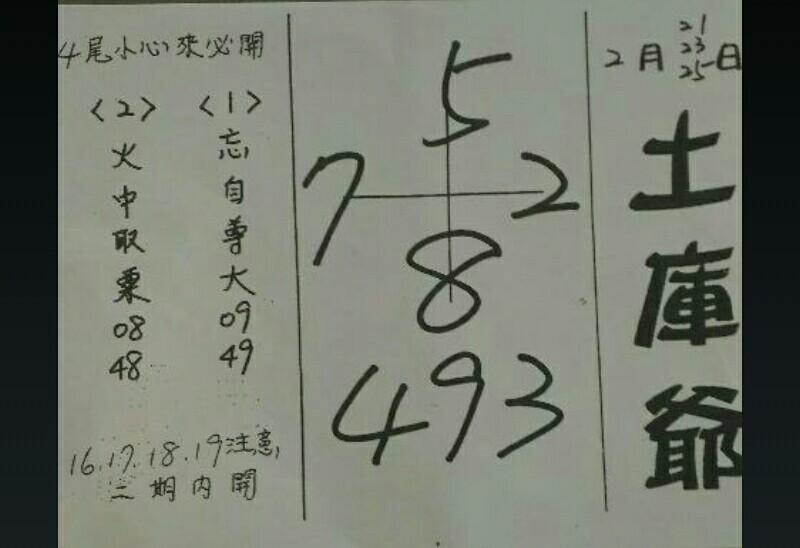 2月21 23 25日
土庫爺
5
7 2
8
493
4尾小心來必開
〈1〉
忘自尊大
09
49
〈2〉
火中取栗
08
48
16.17.18.19注意
二期内開